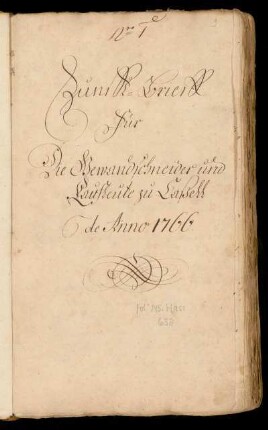 Nro 1
Zunfft-Brieff
für
Die Gewandschneider und
Kaufleute zu Cassell
de Anno 1766
2° Ms. Hass.